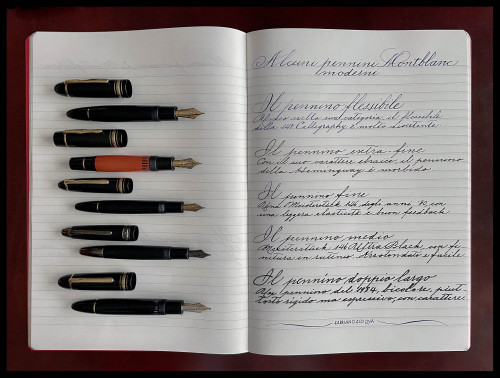 Alcuni pennini Montblanc
moderni
Il pennino flessibile
nella sua categoria, il flessibile
della 149 Calligraphy è molto
Il pennino extra-fine
Con il suo carattere ebraico, il pennino
della Hemingway è morbido
Il pennino fine
Meisterstück 146 degli anni
una leggera elasticità e buon feedback
Il pennino medio
Meisterstück 146 Ultra Black, con fi-
nitura in rutenio. Arrotondato e facile.
Il pennino doppio largo
pennino del 1984, bicolore, piut-
tosto rigido ma espressivo, con carattere.